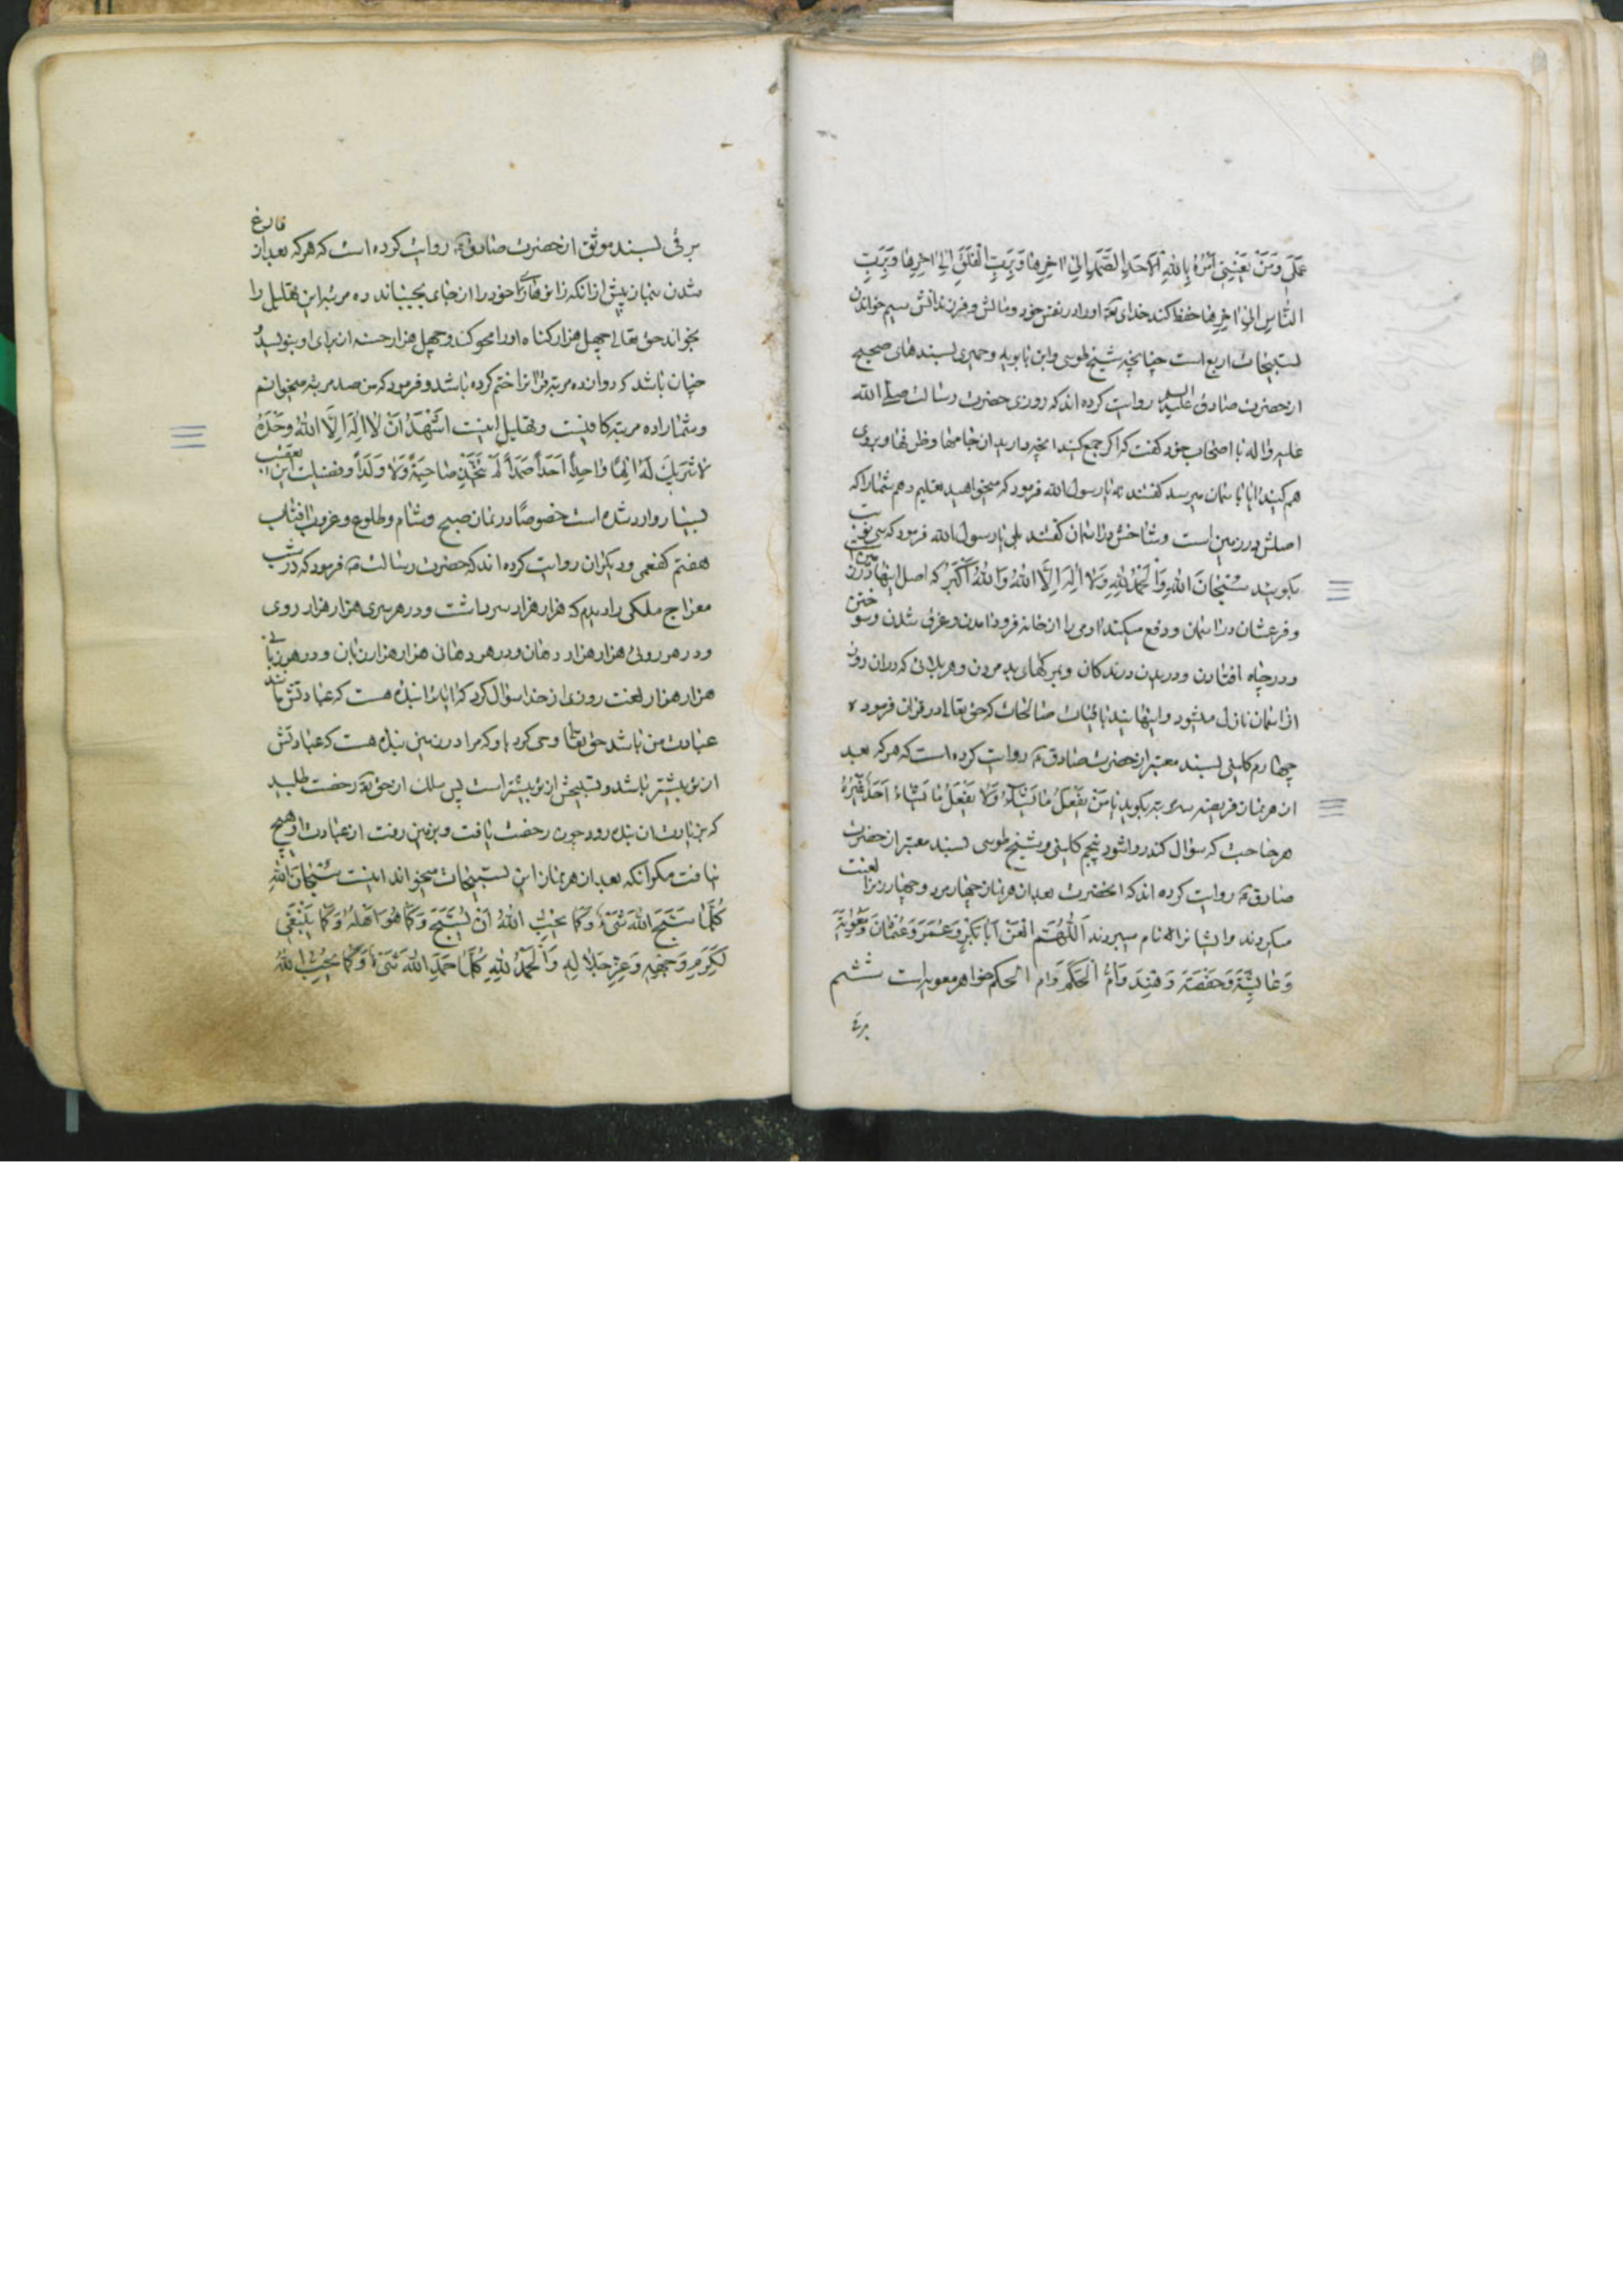 عَلَیَّ وَمَنْ یَعْنِینِی اَمْرُهُ بِاللهِ الْاَحَدِ الصَّمَدِ اِلیٰ اخِرِهٰا وَبِرَبِّ الْفَلَقِ اِلیٰ اخِرِهٰا وَبِرَبِّ
النّٰاسِ اِلیٰ اخِرِهٰا حفظ کند خدای تعه او را در نفس خود و مالش و فرزندانش سیم خواندن
تسبیحات اربع است چنانچه شیخ طوسی و ابن بابویه و حمیری بسندهای صحیح
از حضرت صادق علیه السلم روایت کرده اند که روزی حضرت رسالت صلی الله
علیه و اله با اصحاب خود کفت که اکر جمع کنید انچه دارید از جامها و ظرفها و بر روی
هم کنید ایا باسمان میرسد کفتند نه یا رسول الله فرمود که میخواهید تعلیم دهم شما را که
اصلش در زمین است و شاخش در اسمان کفتند بلی یا رسول الله فرمود که سی نوبت
بکویید سُبْحٰانَ اللهِ وَالْحَمْدُ لِلّٰهِ وَلٰا اِلٰهَ اِلَّا اللهُ وَاللهُ اَکْبَرُ که اصل اینها در زمین است
و فرعشان در اسمان و دفع میکند ادمی را از خانه فرود امدن و غرق شدن و سوختن
و در چاه افتادن و دریدن درندکان و بمرکهای بد مردن و هر بلائی که در ان روز
از اسمان نازل میشود و اینهایند باقیات صالحات که حق تعالی در قران فرموده
چهارم کلینی بسند معتبر از حضرت صادق ع روایت کرده است که هر که بعد
از هر نماز فریضه سه مرتبه بکوید یٰا مَنْ یَفْعَلُ مٰا یَشٰاءُ وَلٰا یَفْعَلُ مٰا یَشٰاءُ اَحَدٌ غَیْرُهُ
هر حاجت که سؤال کند روا شود پنجم کلینی و شیخ طوسی بسند معتبر از حضرت
صادق ع روایت کرده اند که انحضرت بعد از هر نماز چهار مرد و چهار زن را لعنت
میکردند و ایشانرا نام میبردند اَللّٰهُمَّ الْعَنْ اَبٰا بَکْرٍ وَعُمَرَ وَعُثْمٰانَ وَمُعٰوِیَةَ
وَعٰایِشَةَ وَحَفْصَةَ وَهِنْدَ وَاُمَّ الْحَکَمِ وَام الحکم خواهر معویه است ششم
برقی
برقی بسند موثق از حضرت صادق ع روایت کرده است که هر که بعد از فارغ
شدن نماز پیش از انکه زانوهای خود را از جای بجنباند ده مرتبه این تهلیل را
بخواند حق تعالی چهل هزار کناه او را محو کند و چهل هزار حسنه از برای او بنویسد و
چنان باشد که دوازده مرتبه قرانرا ختم کرده باشد و فرمود که من صد مرتبه میخوانم
و شما را ده مرتبه کافیست و تهلیل اینست اَشْهَدُ اَنْ لٰا اِلٰهَ اِلَّا اللهُ وَحْدَهُ
لٰا شَرِیكَ لَهُ اِلٰهًا وٰاحِدًا اَحَدًا صَمَدًا لَمْ یَتَّخِذْ صٰاحِبَةً وَلٰا وَلَدًا و فضیلت این تعقیب
بسیار وارد شده است خصوصًا در نماز صبح و شام و طلوع و غروب افتاب
هفتم کفعمی و دیکران روایت کرده اند که حضرت رسالت ص فرمود که در شب
معراج ملکی را دیدم که هزار هزار سر داشت و در هر سری هزار هزار روی
و در هر روئی هزار هزار دهان و در هر دهانی هزار هزار زبان و در هر زبانی
هزار هزار لغت روزی از خدا سؤال کرد که ایا ترا بنده هست که عبادتش مانند
عبادت من باشد حق تعالی وحی کرد باو که مرا در زمین بنده هست که عبادتش
از تو بیشتر باشد و تسبیحش از تو بیشتر است پس ملك از حق تعه رخصت طلبید
که بزیارت ان بنده رود چون رخصت یافت و بزمین رفت از عبادت او هیچ
نیافت مکر انکه بعد از هر نماز این تسبیحات میخواند اینست سُبْحٰانَ اللهِ
کُلَّمٰا سَبَّحَ اللهَ شَیْءٌ وَکَمٰا یُحِبُّ اللهُ اَنْ یُسَبَّحَ وَکَمٰا هُوَ اَهْلُهُ وَکَمٰا یَنْبَغِی
لِکَرَمِ وَجْهِهِ وَعِزِّ جَلٰالِهِ وَالْحَمْدُ لِلّٰهِ کُلَّمٰا حَمِدَ اللهَ شَیْءٌ وَکَمٰا یُحِبُّ اللهُ